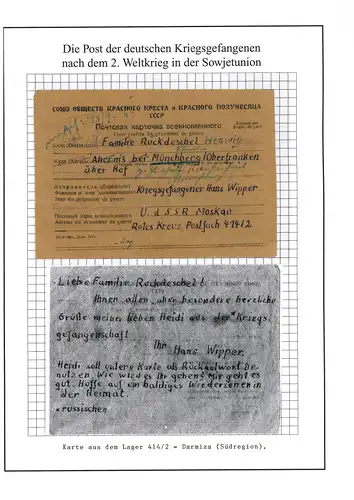 Die Post der deutschen Kriegsgefangenen
nach dem 2. Weltkrieg in der Sowjetunion
СОЮЗ ОБЩЕСТВ КРАСНОГО КРЕСТА и КРАСНОГО ПОЛУМЕСЯЦА
СССР
Почтовая карточка военнопленного
Carte postale du prisonnier de guerre
Familie Ruckdeschel Hennig
Ahornis bei Münchberg (Oberfranken
über Hof
Отправитель (Expéditeur)
Kriegsgefangener Hans Wipper
U.d.S.S.R Moskau
Rotes Kreuz Postfach 414/2
Liebe Familie Ruckdeschel!
Ihnen allen, aber besondere herzliche
Grüße meiner lieben Heidi aus der * Kriegs-
gefangenschaft
Ihr
Hans Wipper.
Heidi soll untere Karte als Rückantwort be-
nutzen. Wie wird es Ihr gehen? Mir geht es
gut. Hoffe auf ein baldiges Wiedersehen in
der Heimat.
*russischen
Karte aus dem Lager 414/2 = Darmiza (Südregion).